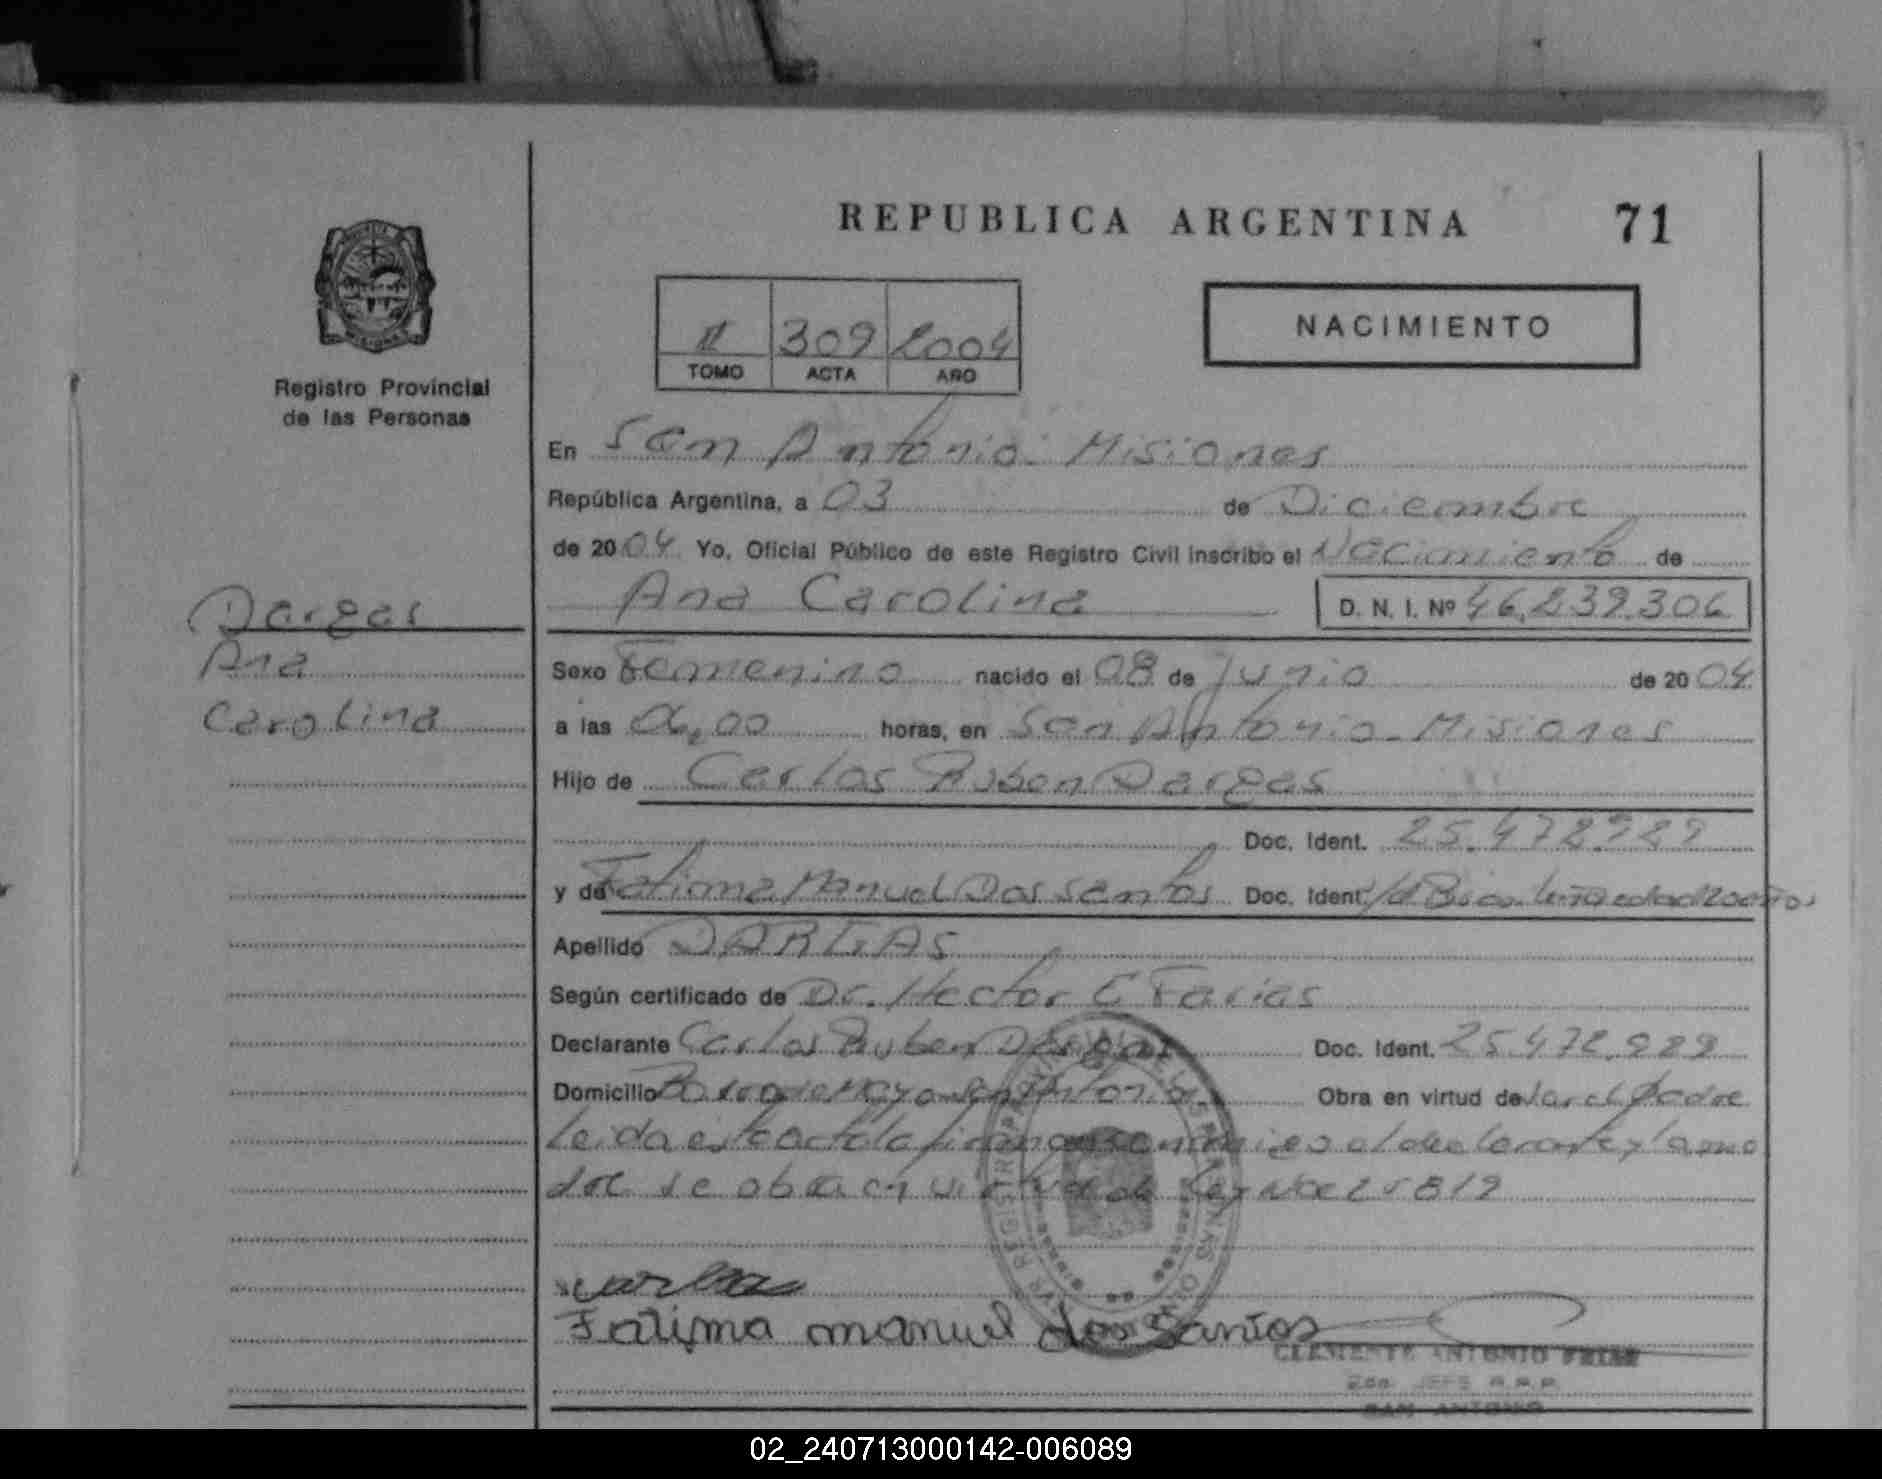 REPUBLICA ARGENTINA 71
II 309 2004
TOMO ACTA AÑO
NACIMIENTO
Registro Provincial
de las Personas
En San Antonio. Misiones
República Argentina, a 03 de Diciembre
de 2004 Yo, Oficial Público de este Registro Civil inscribo el Nacimiento de
Ana Carolina D. N. I. Nº 46.239.306
Dargas
Ana
Carolina
Sexo Femenino nacido el 08 de Junio de 2004
a las 06,00 horas, en San Antonio - Misiones
Hijo de Carlos Ruben Dargas
Doc. Ident. 25.472.989
y de Fatima Manuel Dos Santos Doc. Ident.
Apellido DARGAS
Según certificado de Dr. Hector C Farias
Declarante Carlos Ruben Dargas Doc. Ident. 25.472.989
Domicilio San Antonio Obra en virtud de ser el padre
Leida este acta la firman conmigo el declarante y la ma
dre se obra en virtud de Ley Nro 25819
Carlos
Fatima manuel dos Santos
CLEMENTE ANTONIO
SAN ANTONIO
02_240713000142-006089